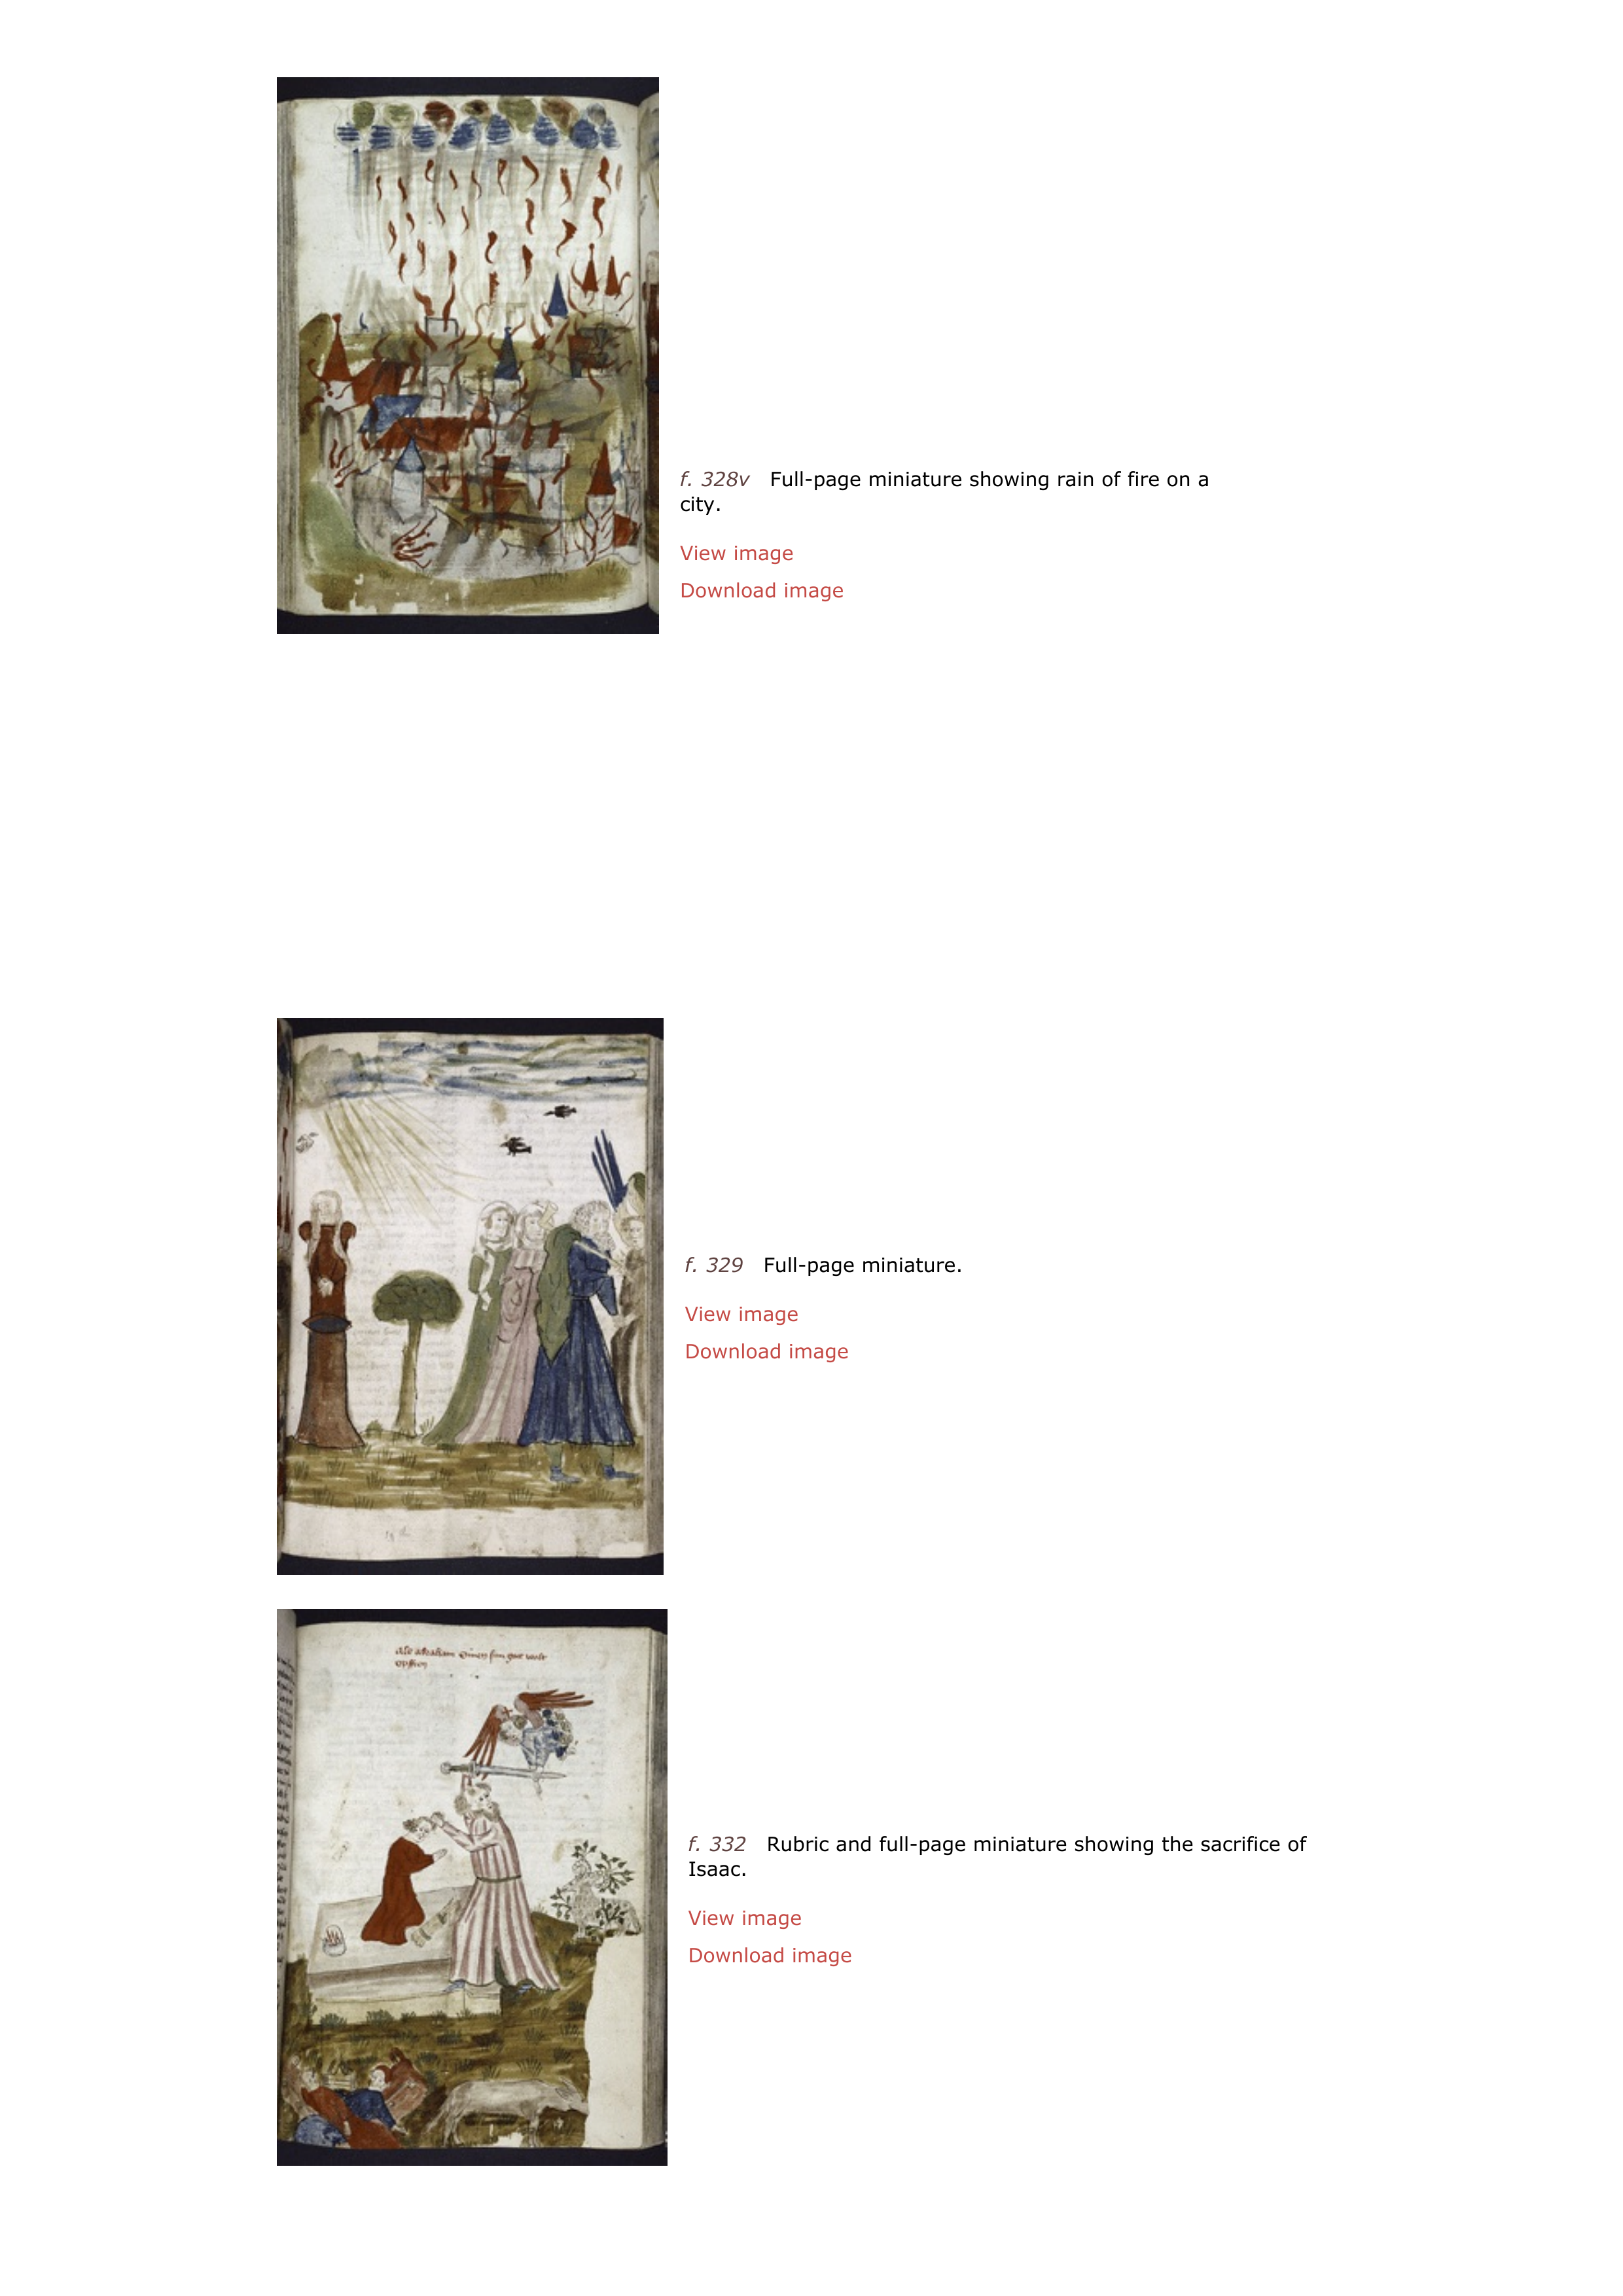 f. 328v Full-page miniature showing rain of fire on a
city.
View image
Download image
f. 329 Full-page miniature.
View image
Download image
als abraham sinen sun got wolt
opffern
f. 332 Rubric and full-page miniature showing the sacrifice of
Isaac.
View image
Download image